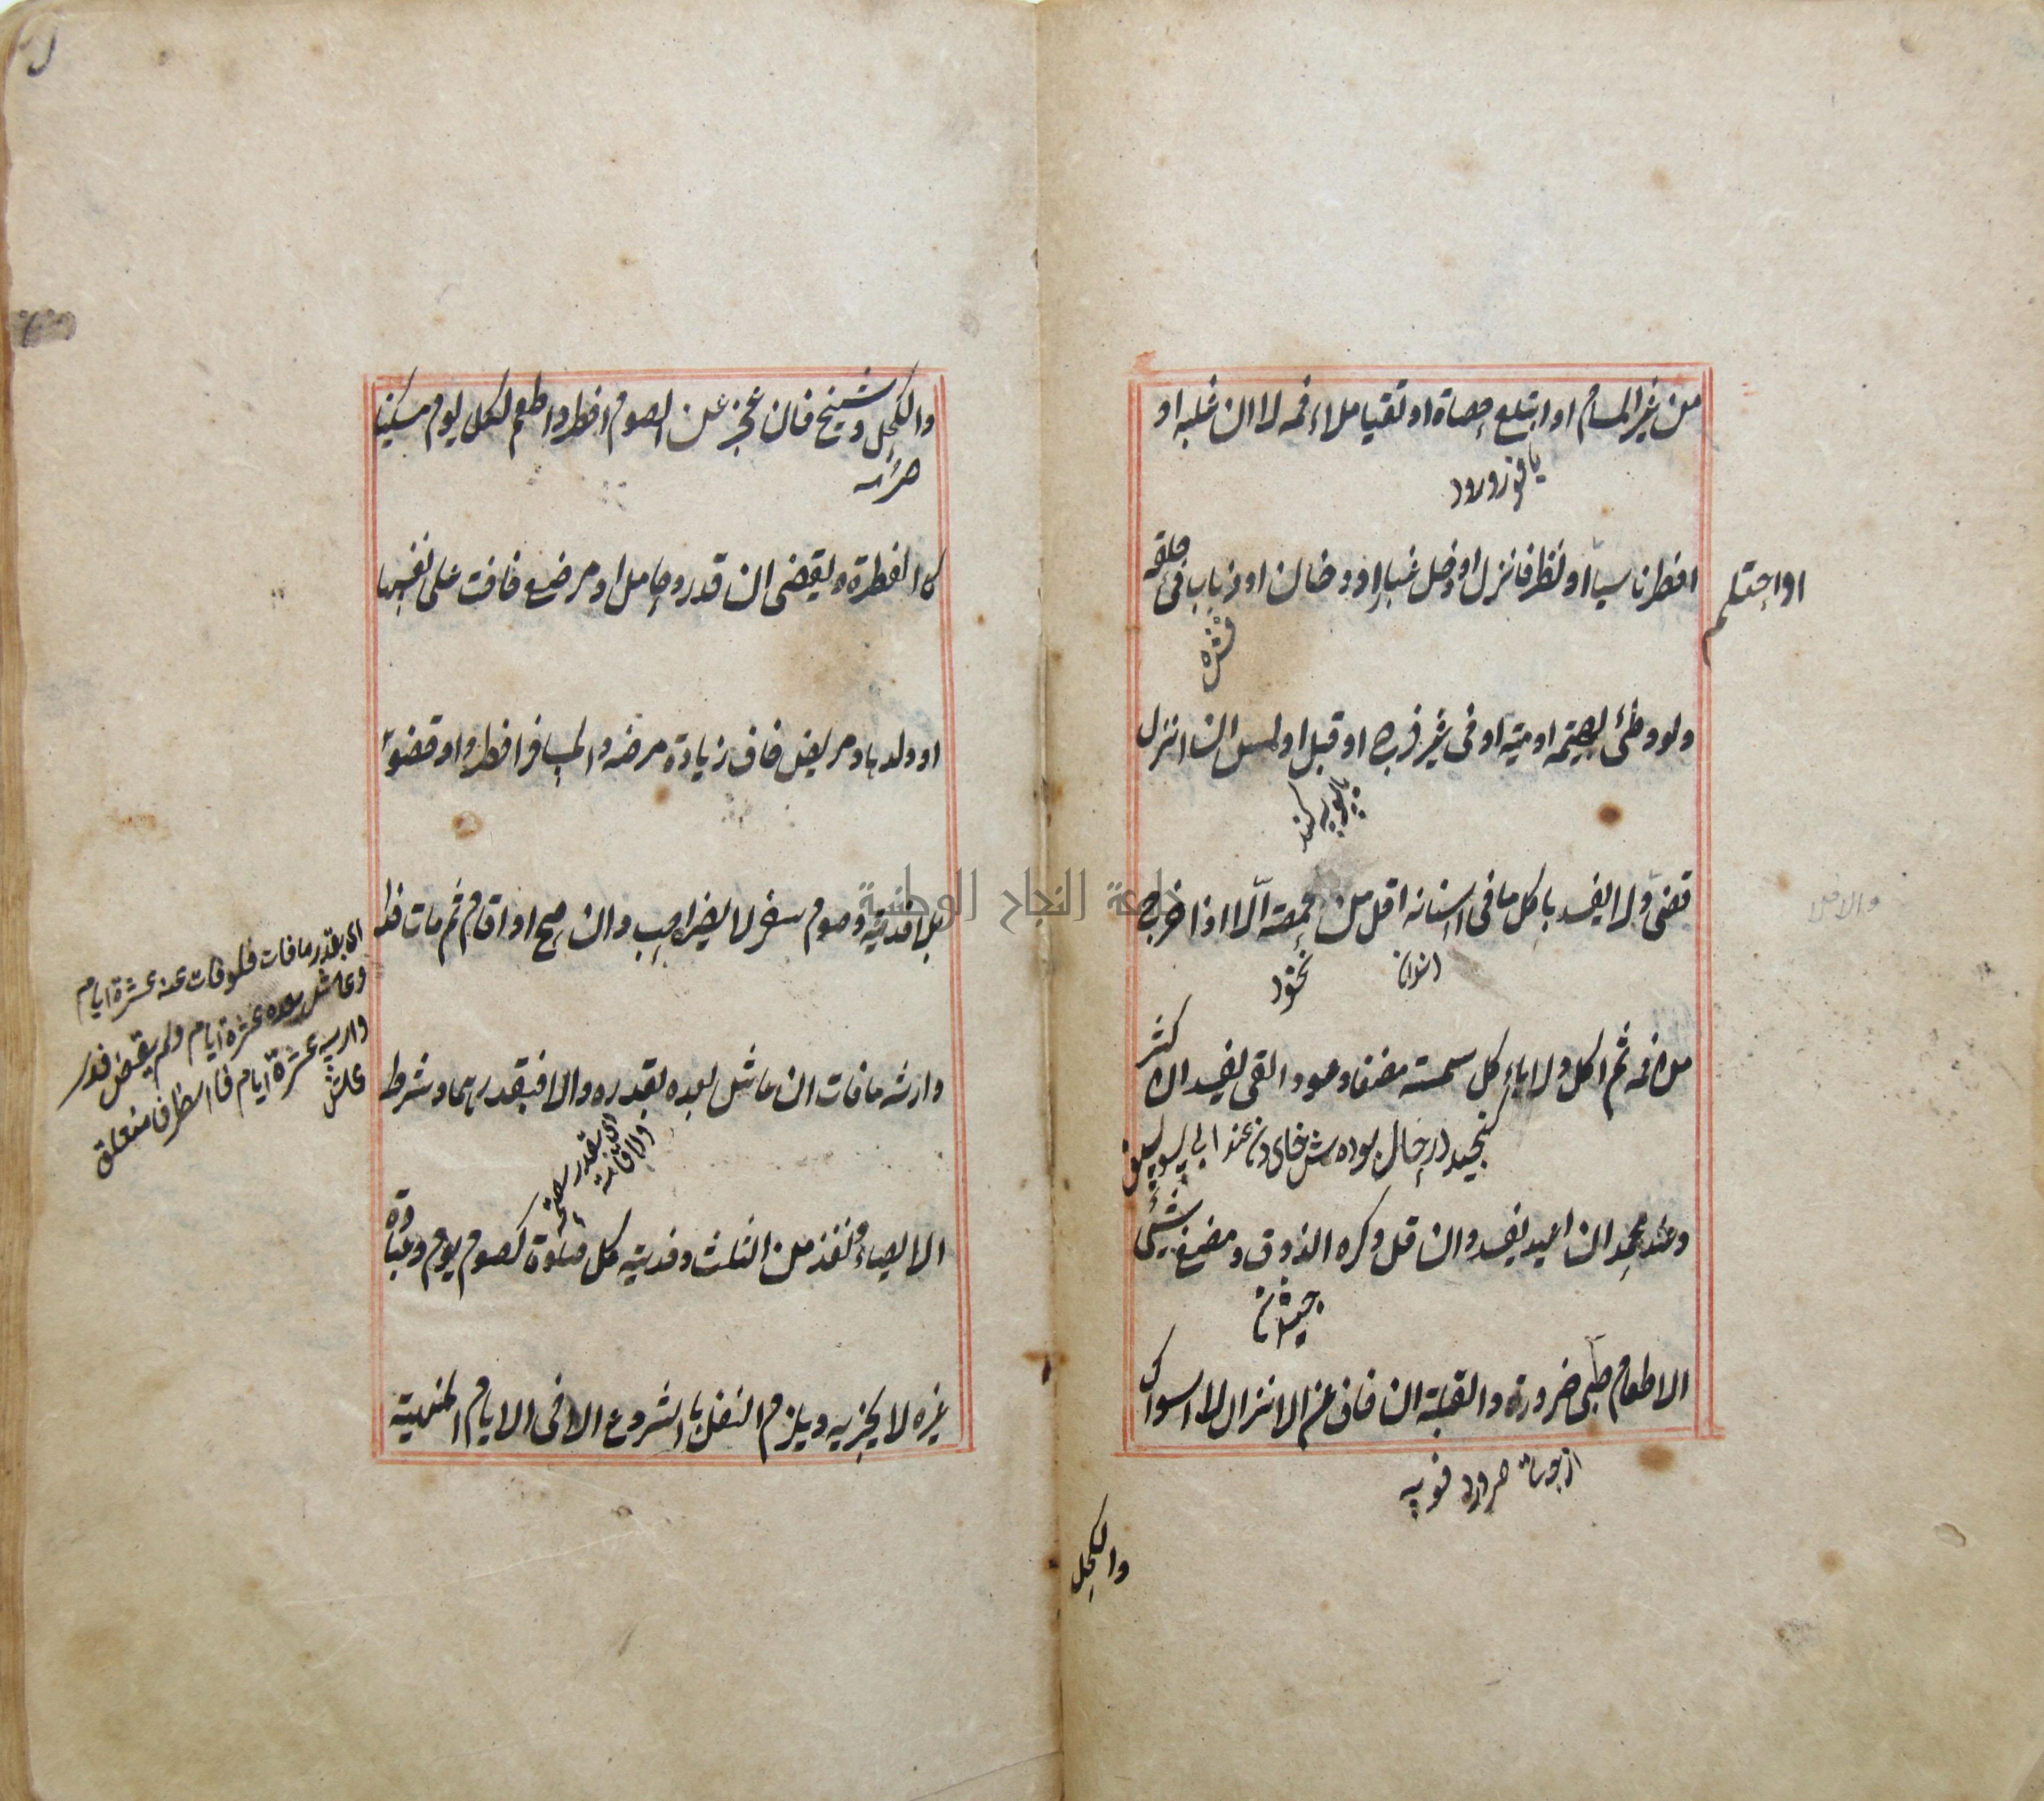 من غير المسام او ابتلع حصاة او تقيا ملاء فمه لا ان غلبه او
يا فرو رود
افطر ناسيا او نظر فانزل او دخل غبار او دخان او ذباب فى حلقه
او احتلم
ولو وطئ بهيمة او ميتة او فى غير فرج او قبل او لمس ان انزل
قضى ولا يفسد باكل ما فى اسنانه اقل من حمصة الا اذا اخرجه
والاصل
نخود
من فمه ثم اكل ولا باكل سمسمة مضغا وعود القى يفسد ان كثر
وعند محمد ان اعيد يفسد وان قل وكره الذوق ومضغ شئ
الا طعام صبى ضرورة والقبلة ان خاف غير الانزال لا السواك
والكحل
والكحل وشيخ فان عجز عن الصوم افطر واطعم لكل يوم مسكينا
كالفطرة ويقضى ان قدر وحامل او مرضع خافت على نفسها
او ولدها ومريض خاف زيادة مرضه والمسافر افطروا وقضوا
بلا فدية وصوم سفر لا يضر احب وان صح او اقام ثم مات فدا
اى بقدر ما فات فلو فات عنه عشرة ايام
وعاش بعده عشرة ايام ولم يقض فدر
وارثه عشرة ايام فالظرف متعلق
عاش
وارثه ما فات ان عاش بعده بقدره والا فبقدرهما وشرط
الايصاء وتنفذ من الثلث وفدية كل صلوة كصوم يوم وعبادة
غيره لا يجزيه ويلزم النفل بالشروع الا فى الايام المنهية